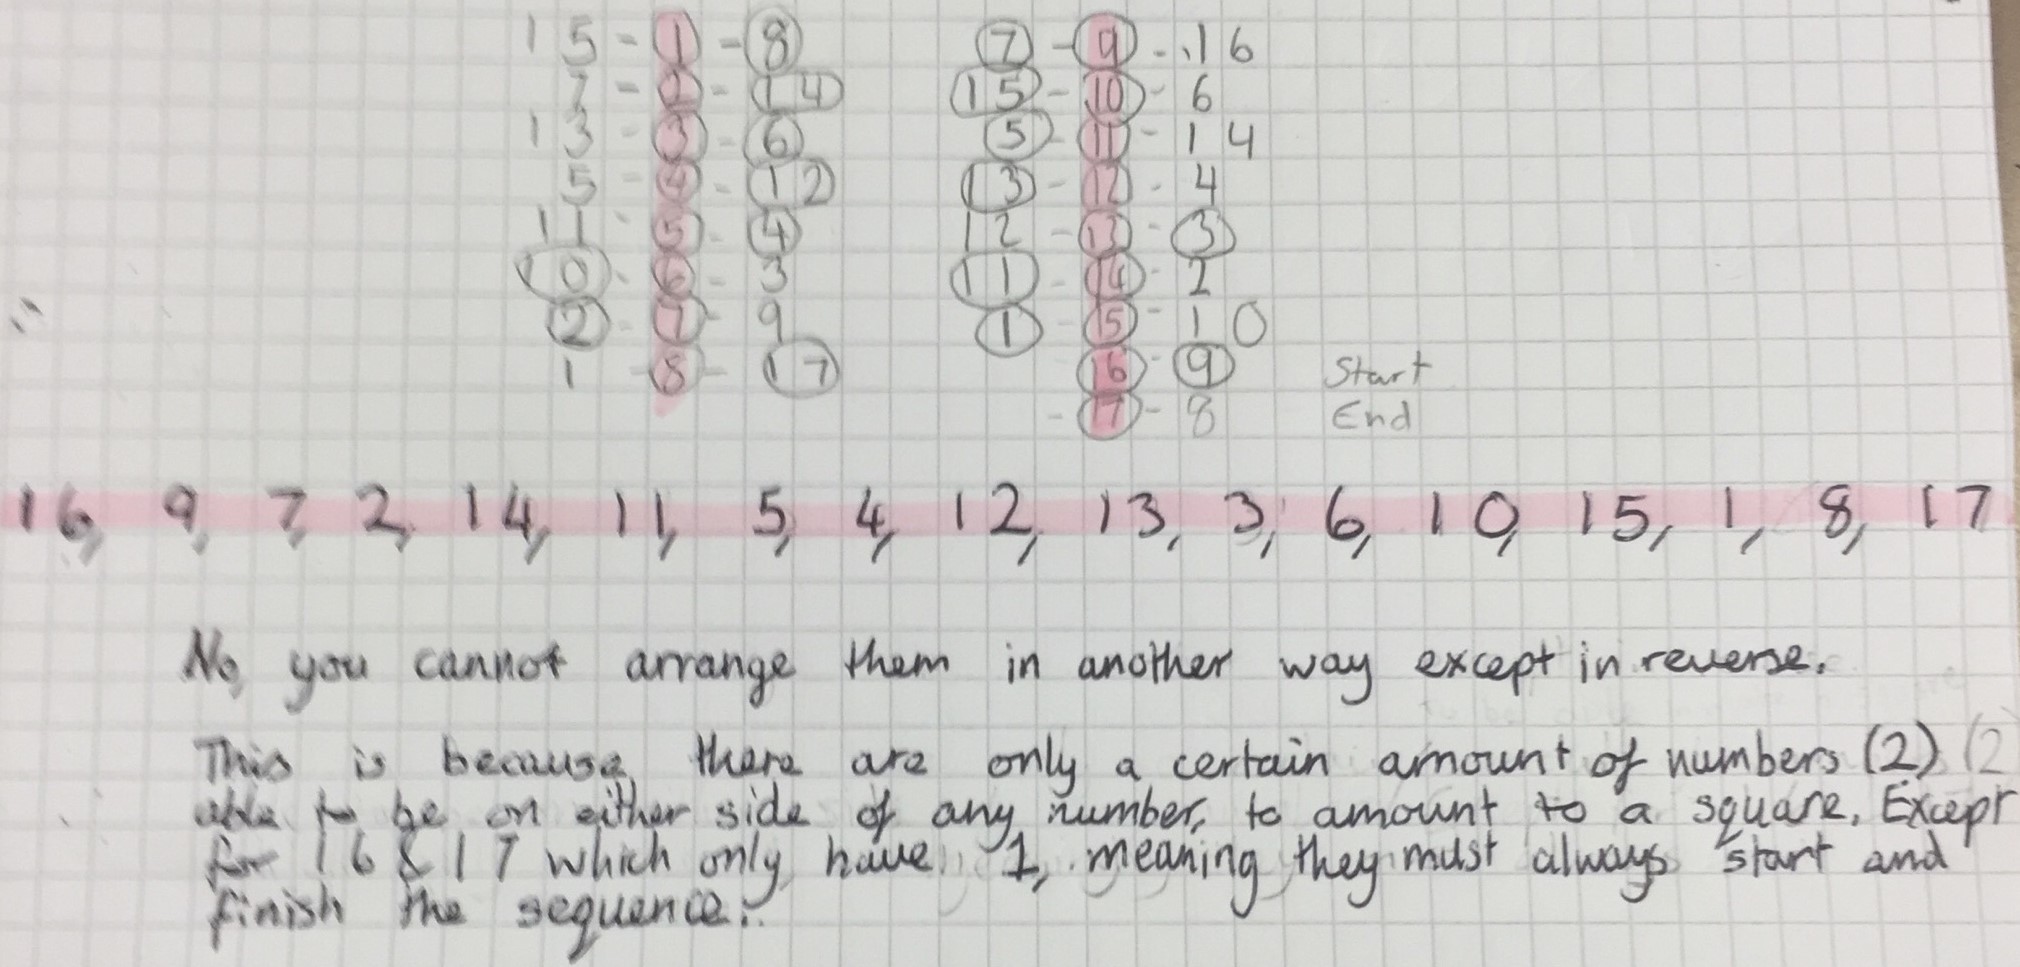 15 - 1 - 8 7 - 9 - 16
7 - 2 - 14 15 - 10 - 6
13 - 3 - 6 5 - 11 - 14
5 - 4 - 12 13 - 12 - 4
11 - 5 - 4 12 - 13 - 3
10 - 6 - 3 11 - 14 - 2
2 - 7 - 9 1 - 15 - 10
1 - 8 - 17 16 - 9 Start
- 17 - 8 End
16, 9, 7, 2, 14, 11, 5, 4, 12, 13, 3, 6, 10, 15, 1, 8, 17
No, you cannot arrange them in another way except in reverse.
This is because, there are only a certain amount of numbers (2) (2
able to be on either side of any number, to amount to a square. Except
for 16 & 17 which only have 1, meaning they must always start and
finish the sequence.